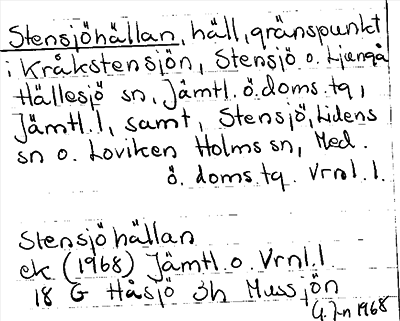 Stensjöhällan, häll, gränspunkt
i Kråkstensjön, Stensjö o. Ljungå
Hällesjö sn, Jämtl. ö. doms. tq,
Jämtl. l, samt, Stensjö, Lidens
sn o. Loviken Holms sn, Med.
ö. doms. tq. Vrnl. l.
Stensjöhällan
ek (1968) Jämtl. o. Vrnl. l
18 G Håsjö 3h Mussjön
G. J-n 1968